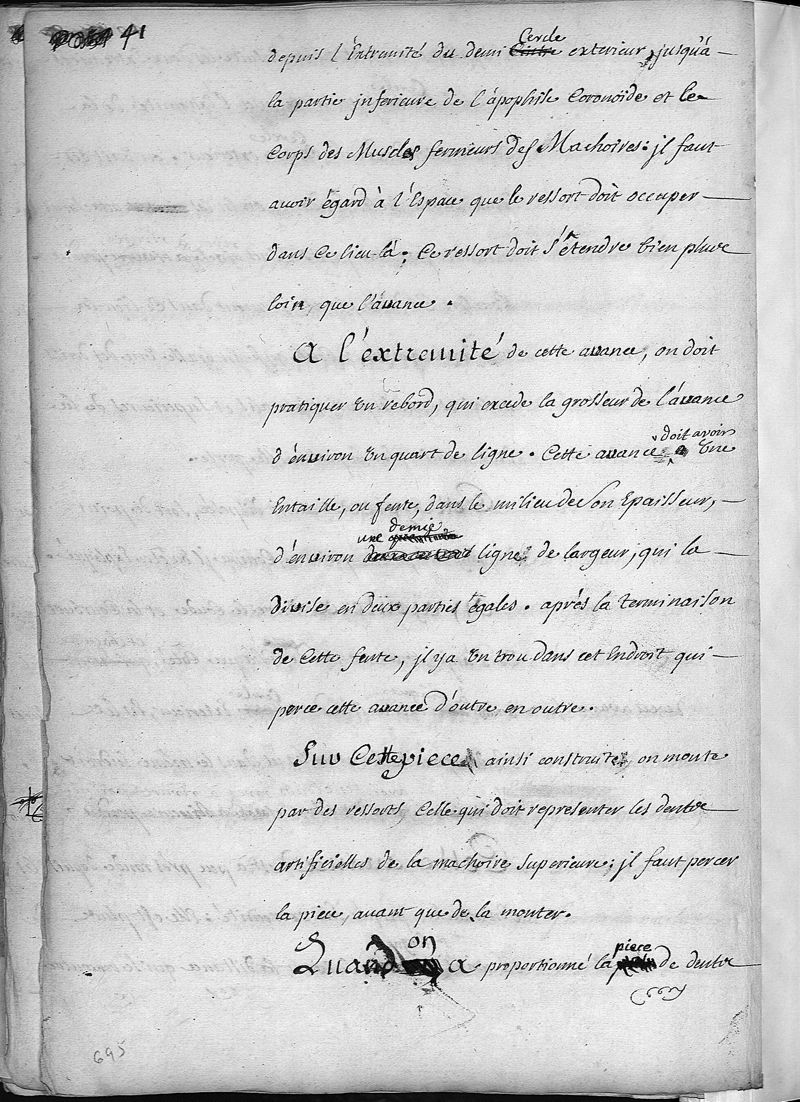 41
depuis l'Extremité du demi Cercle exterieur, jusqu'à
la partie jnferieure de l'apophise Coronoïde et le
Corps des Muscles fermeurs des Machoires. jl faut
avoir égard à l'Espace que le ressort doit occuper
dans ce lieu-là; Ce ressort doit s'étendre bien plus
loin, que l'avance.
A l'éxtremité de cette avance, on doit
pratiquer un rebord, qui excede la grosseur de l'avance
d'énviron un quart de ligne. Cette avance doit avoir une
Entaille, ou fente, dans le milieu de son Epaisseur,
d'énviron une demie ligne de largeur, qui la
divise en deux parties égales. après la terminaison
de cette fente, jl y a un trou dans cet Endroit qui
perce cette avance d'outre en outre.
Sur Cette piece ainsi construite, on monte
par des ressorts, Celle qui doit representer les dents
artificielles de la machoire superieure; jl faut percer
la piece, avant que de la monter.
Quand on a proportionné la piece de dents
695